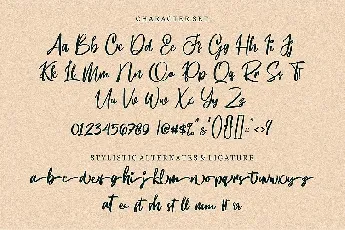 CHARACTER SET
Aa Bb Cc Dd Ee Ff Gg Hh Ii Jj
Kk Ll Mm Nn Oo Pp Qq Rr Ss Tt
Uu Vv Ww Xx Yy Zz
0123456789 !@#$%
STYLISTIC ALTERNATES & LIGATURE
a b c d e g h i j k l m n o p q r s t u v w x y g
at ee st th st ll mm tt